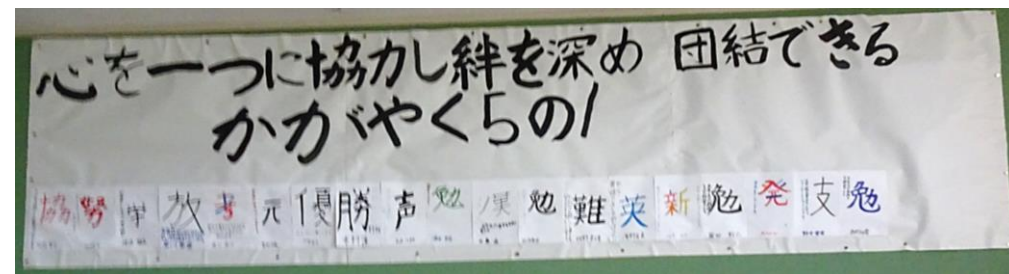 心を一つに協力し絆を深め 団結できる
かがやく5の1
協 努 学 放 書 元 優 勝 声 勉 漢 勉 難 英 新 勉 発 支 勉